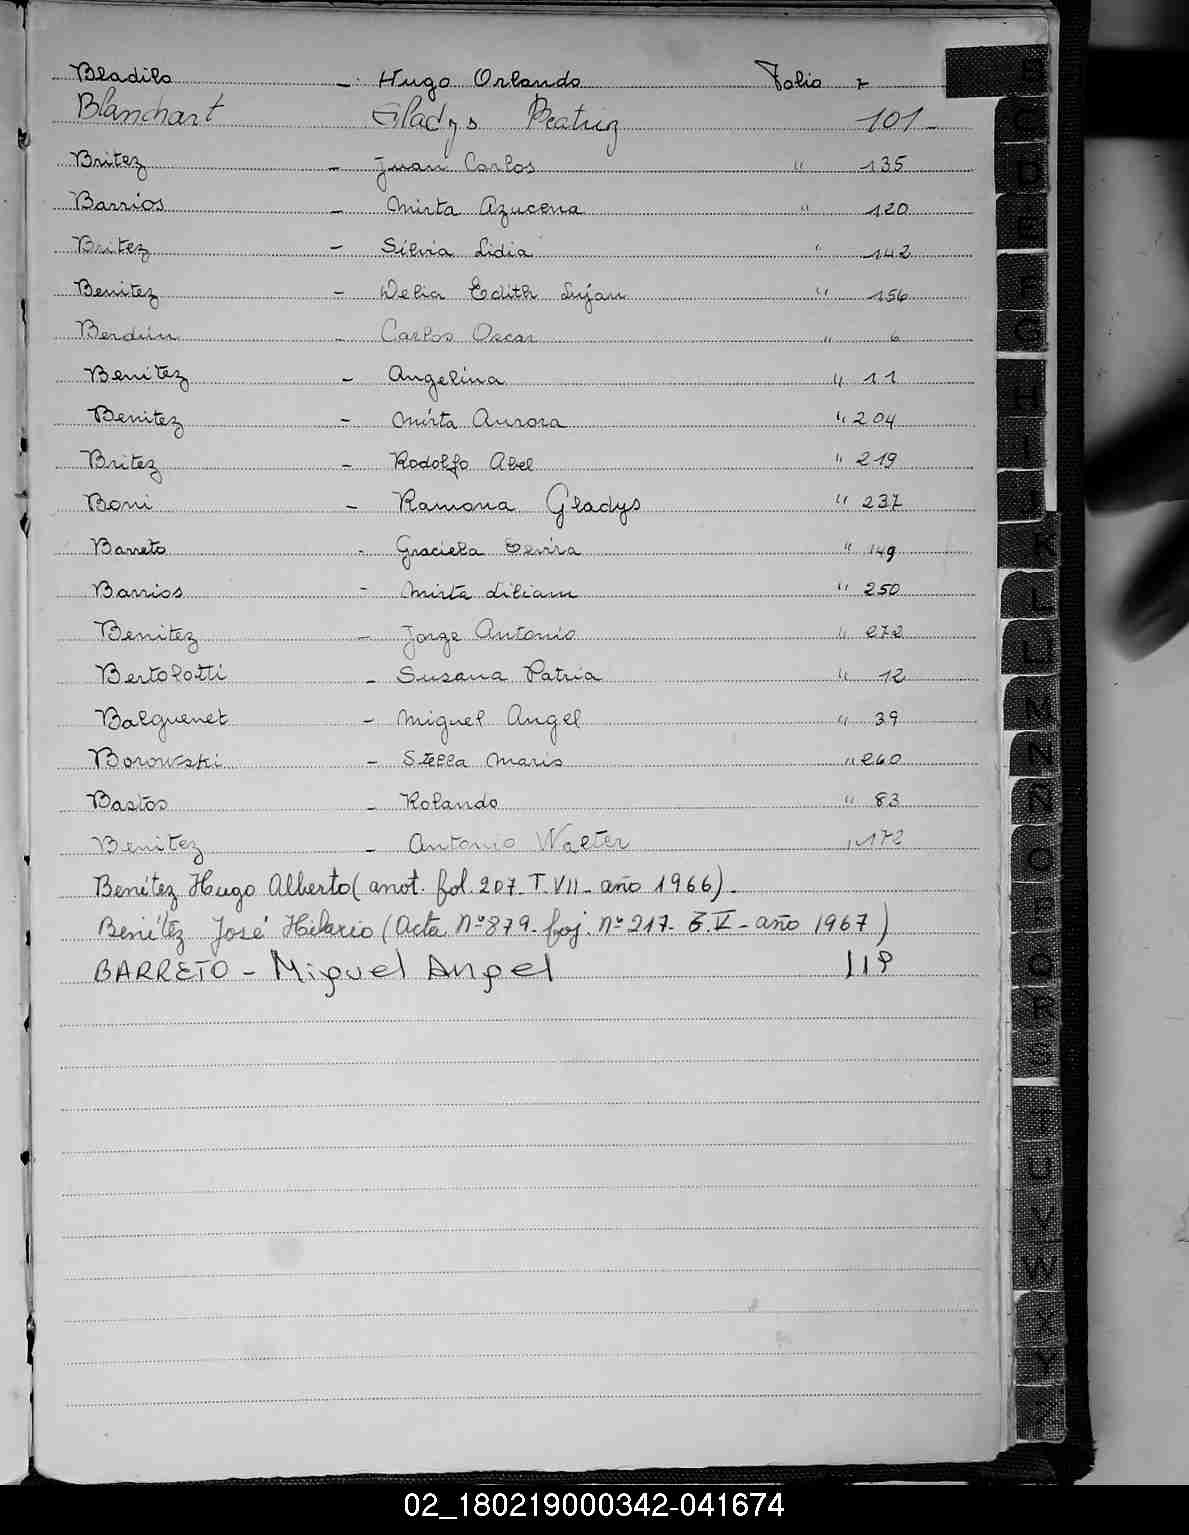 Bladilo - Hugo Orlando Folio 7
Blanchart Gladys Beatriz 101-
Britez - Juan Carlos " 135
Barrios - Mirta Azucena " 120
Britez - Silvia Lidia " 142
Benitez - Delia Edith Lujan " 156
Berdún - Carlos Oscar " 6
Benítez - Angelina " 11
Benitez - Mirta Aurora " 204
Britez - Rodolfo Abel " 219
Boni - Ramona Gladys " 237
Barreto - Graciela " 149
Barrios - Mirta Liliam " 250
Benitez - Jorge Antonio " 272
Bertolotti - Susana Patria " 12
Balquenet - Miguel Angel " 39
Borowski - Stella Maris " 260
Bastos - Rolando " 83
Benitez - Antonio Walter " 172
Benítez Hugo Alberto (anot. fol. 207. T. VII - año 1966).
Benítez José Hilario (Acta Nº 879. foj. Nº 217. T. V - año 1967)
BARRETO - Miguel Angel 119
B
C
D
E
F
G
H
I
J
K
L
LL
M
N
Ñ
O
P
Q
R
S
T
U
V
W
X
Y
02_180219000342-041674